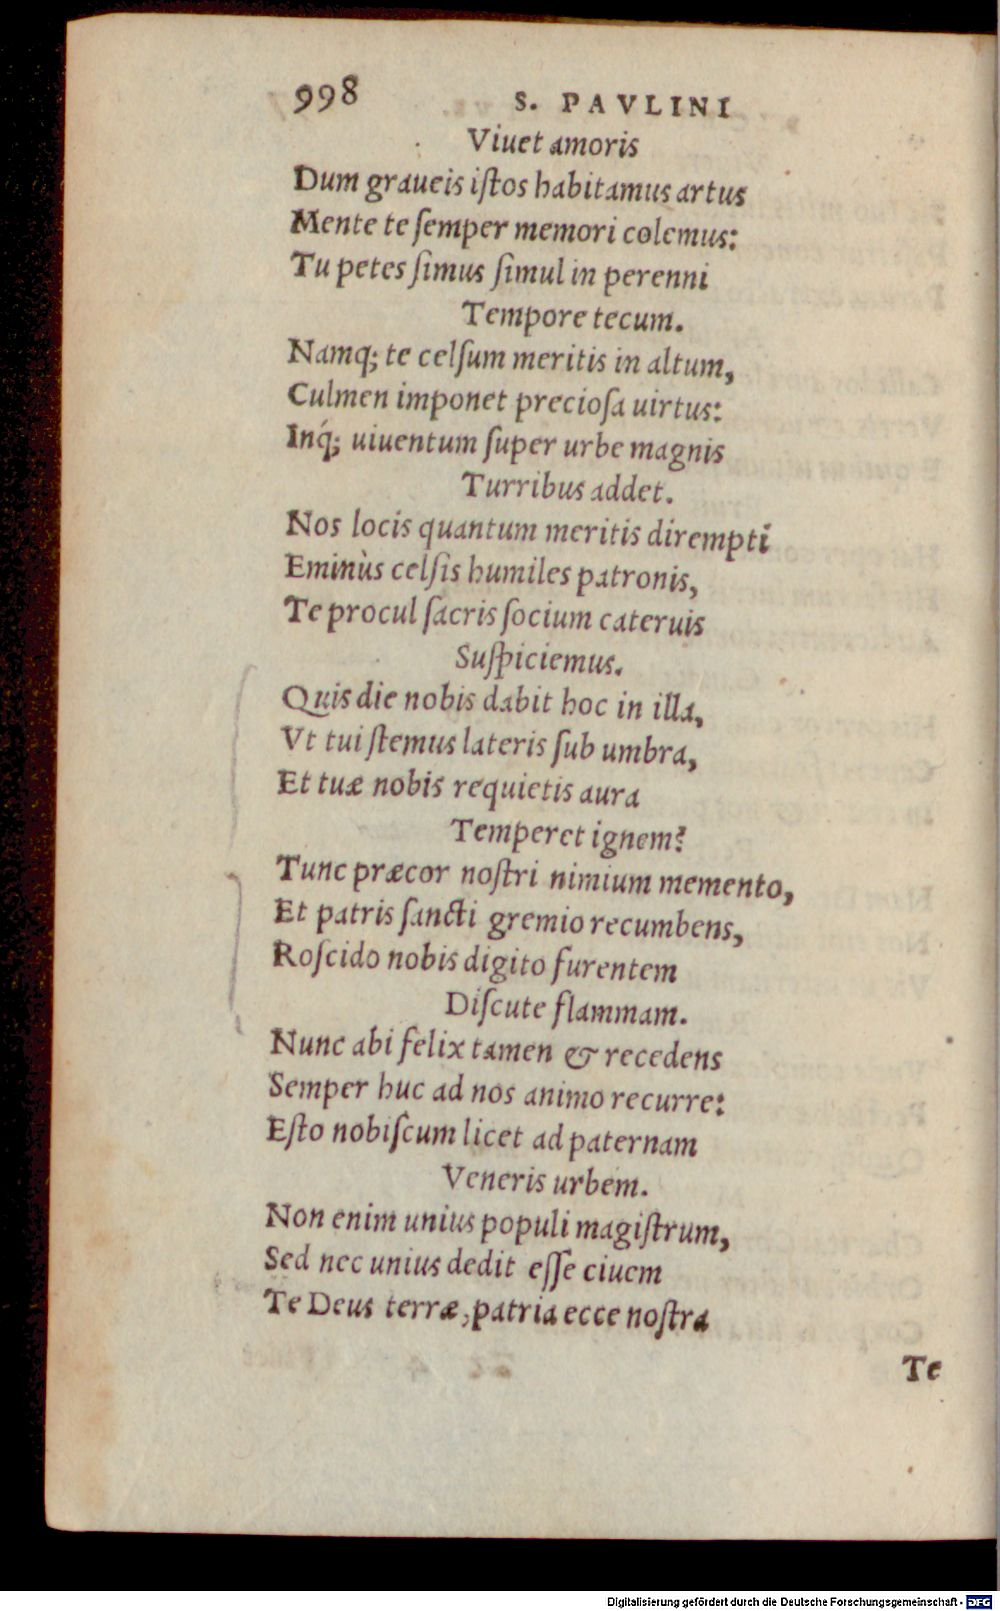 998 S. PAVLINI
Viuet amoris
Dum graueis iſtos habitamus artus
Mente te ſemper memori colemus:
Tu petes ſimus ſimul in perenni
Tempore tecum.
Namq; te celſum meritis in altum,
Culmen imponet precioſa uirtus:
Inq́; uiuentum ſuper urbe magnis
Turribus addet.
Nos locis quantum meritis dirempti
Eminùs celſis humiles patronis,
Te procul ſacris ſocium cateruis
Suſpiciemus.
Quis die nobis dabit hoc in illa,
Vt tui ſtemus lateris ſub umbra,
Et tuæ nobis requietis aura
Temperet ignem?
Tunc præcor noſtri nimium memento,
Et patris ſancti gremio recumbens,
Roſcido nobis digito furentem
Diſcute flammam.
Nunc abi felix tamen & recedens
Semper huc ad nos animo recurre:
Eſto nobiſcum licet ad paternam
Veneris urbem.
Non enim unius populi magiſtrum,
Sed nec unius dedit eſſe ciuem
Te Deus terræ, patria ecce noſtra
Te
Digitalisierung gefördert durch die Deutsche Forschungsgemeinschaft - DFG